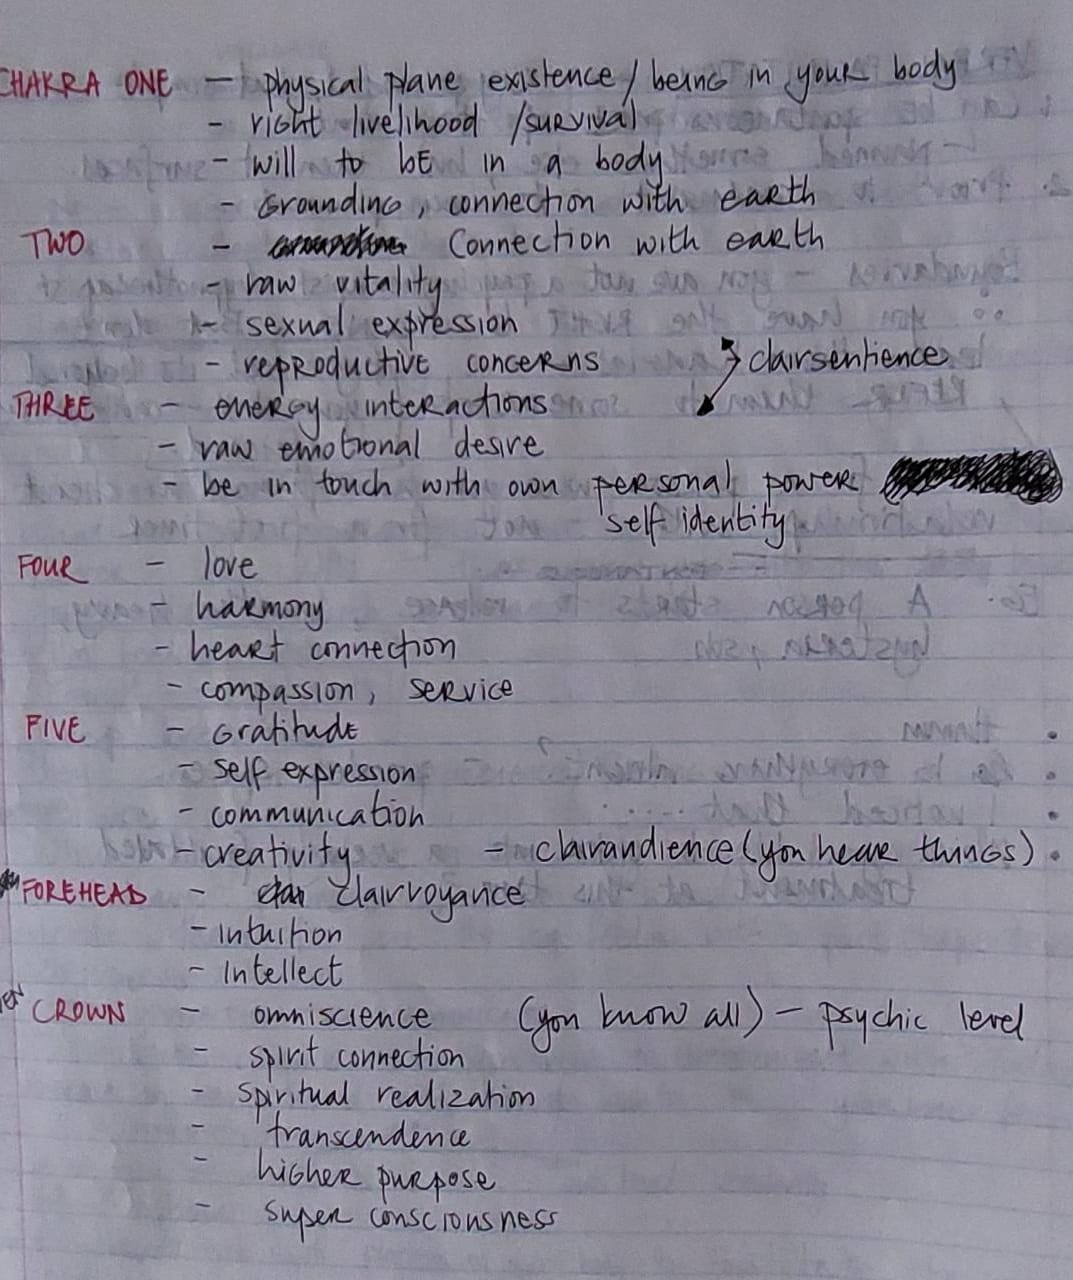 CHAKRA ONE - physical plane existence / being in your body
- right livelihood / survival
- will to be in a body
- Grounding, connection with earth
TWO - Connection with earth
- raw vitality
- sexual expression
- reproductive concerns
clairsentience
THREE - energy interactions
- raw emotional desire
- be in touch with own personal power
self identity
FOUR - love
- harmony
- heart connection
- compassion, service
FIVE - Gratitude
- self expression
- communication
- creativity - clairaudience (you hear things)
FOREHEAD - clairvoyance
- Intuition
- Intellect
CROWN - omniscience (you know all) - psychic level
- spirit connection
- spiritual realization
- transcendence
- higher purpose
- super consciousness